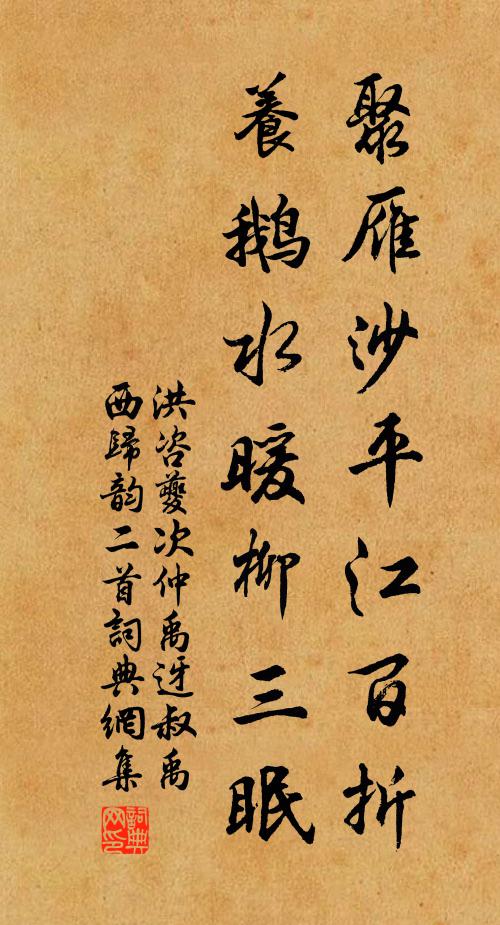 聚雁沙平江百折
養鵝水暖柳三眠
洪咨夔次仲禹迓叔禹
西歸韵二首詞典網集
詞典网印